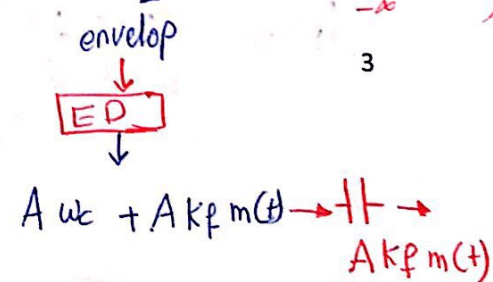 -∞
envelop
3
ED
A wc + A Kf m(t)
A Kf m(t)